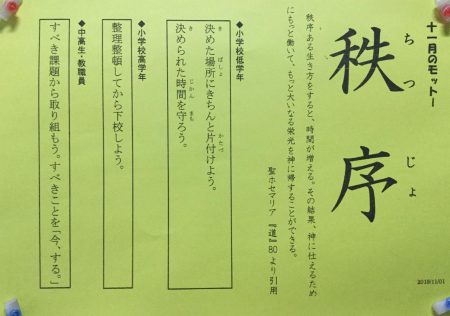 十一月のモットー
秩序
ちつじょ
秩序ある生き方をすると、時間が増える。その結果、神に仕えるため
にもっと働いて、もっと大いなる栄光を神に帰することができる。
聖ホセマリア『道』80より引用
◆小学校低学年
決めた場所にきちんと片付けよう。
き ばしょ かたづ
決められた時間を守ろう。
き じかん まも
◆小学校高学年
整理整頓してから下校しよう。
◆中高生・教職員
すべき課題から取り組もう。すべきことを「今、する。」
2019/11/01